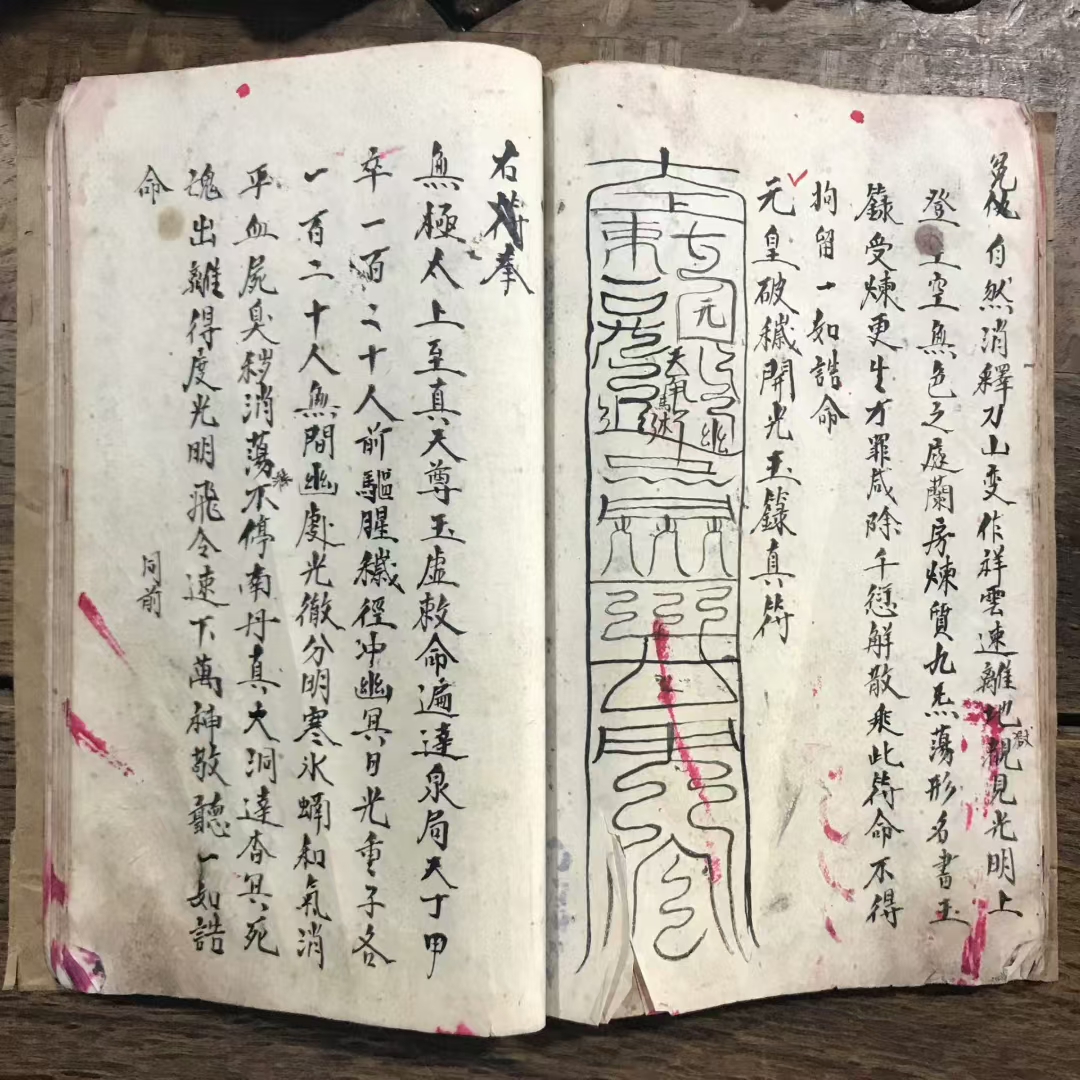 冤仇自然消釋刀山变作祥雲速離地獄覩見光明上
登空無色之庭蘭房煉質九炁蕩形名書玉
籙受煉更生才罪咸除千愆解散乘此符命不得
拘留一如誥命
元皇破穢開光玉籙真符
元
右符奉
無極太上至真天尊玉虛敕命遍達泉局天丁甲
卒一百二十人前驅腥穢徑冲幽冥日光童子各
一百二十人無間幽處光徹分明寒氷蝸和氣消
平血屍臭穢消蕩不停南丹真火洞達杳冥死
魂出離得度光明飛令速下萬神敬聽一如誥
命
同前